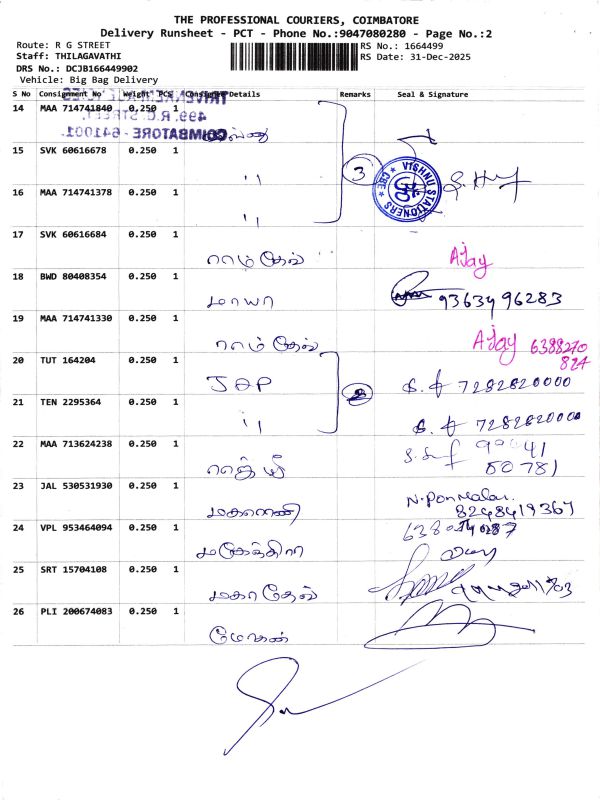 THE PROFESSIONAL COURIERS, COIMBATORE
Delivery Runsheet - PCT - Phone No.:9047080280 - Page No.:2
Route: R G STREET
Staff: THILAGAVATHI
DRS No.: DCJB166449902
Vehicle: Big Bag Delivery
RS No.: 1664499
RS Date: 31-Dec-2025
S No Consignment No Weight PCS Consignee Details Remarks Seal & Signature
499, R.G. STREET,
COIMBATORE - 641001.
14 MAA 714741840 0.250
15 SVK 60616678 0.250 1
"
3
VISHNU STATIONERS CBE
16 MAA 714741378 0.250 1
"
17 SVK 60616684 0.250 1
ராம் தேவ் Ajay
18 BWD 80408354 0.250 1
மாயா 9363496283
19 MAA 714741330 0.250 1
ராம் தேவ் Ajay 6388270
824
20 TUT 164204 0.250 1
7282820000
21 TEN 2295364 0.250 1
" 7282820000
22 MAA 713624238 0.250 1
80781
23 JAL 530531930 0.250 1
மகாராணி N.Ponmalar.
8248419367
24 VPL 953464094 0.250 1
25 SRT 15704108 0.250 1
மகாதேவ்
26 PLI 200674083 0.250 1
மோகன்